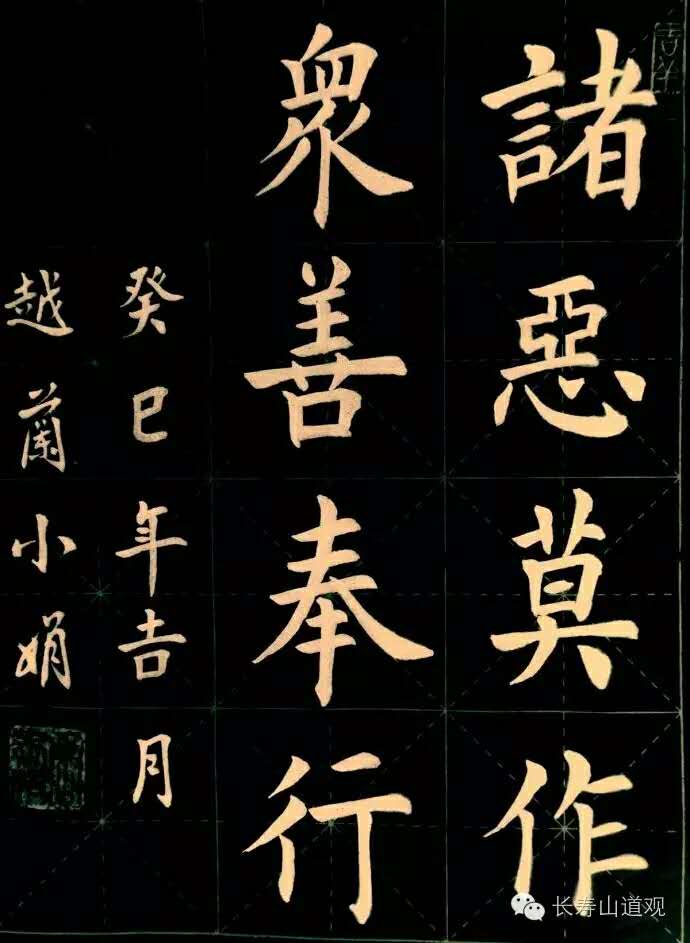 諸惡莫作
眾善奉行
癸巳年吉月
越蘭小娟
长寿山道观